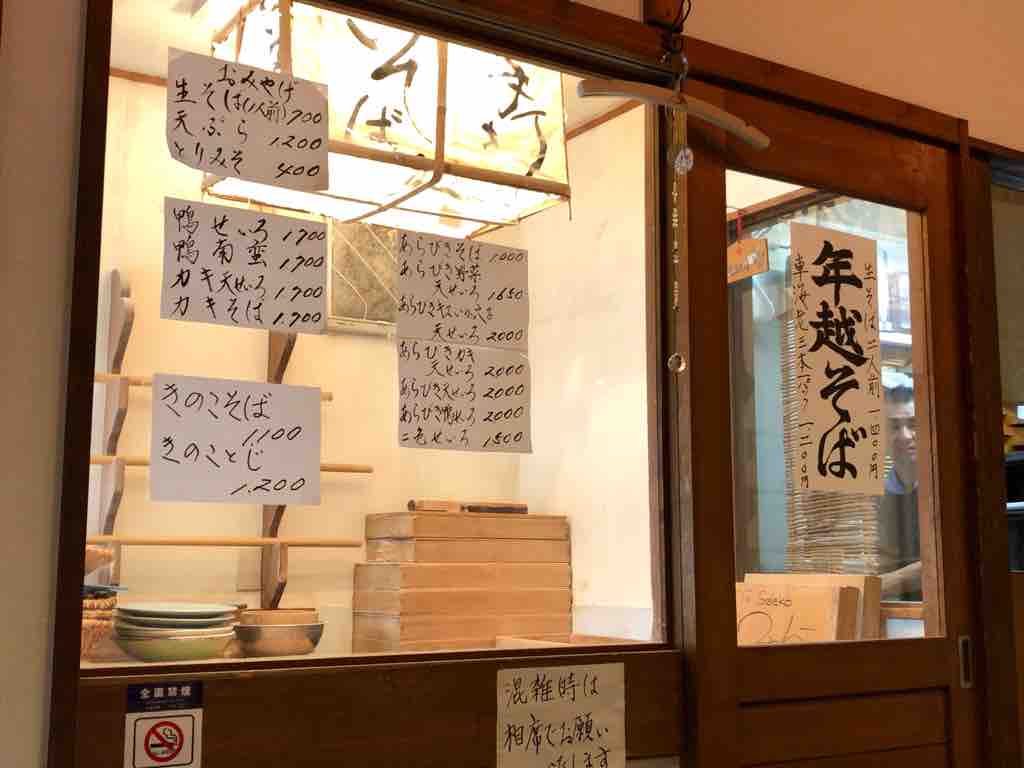 おみやげ
生そば(1人前) 700
天ぷら 1200
とりみそ 400
鴨せいろ 1700
鴨南蛮 1700
カキ天せいろ 1700
カキそば 1,700
きのこそば
1,100
きのことじ
1,200
あらびきそば 1000
あらびき野菜
天せいろ 1650
天せいろ 2000
あらびきカキ
天せいろ 2000
あらびき天せいろ 2000
あらびき鴨せいろ 2000
二色せいろ 1500
そば
生そば 二人前 一四〇〇円
年越そば
車海老 三本 一パック 一二〇〇円
全面禁煙
混雑時は
相席でお願い
いたします
To Seeko